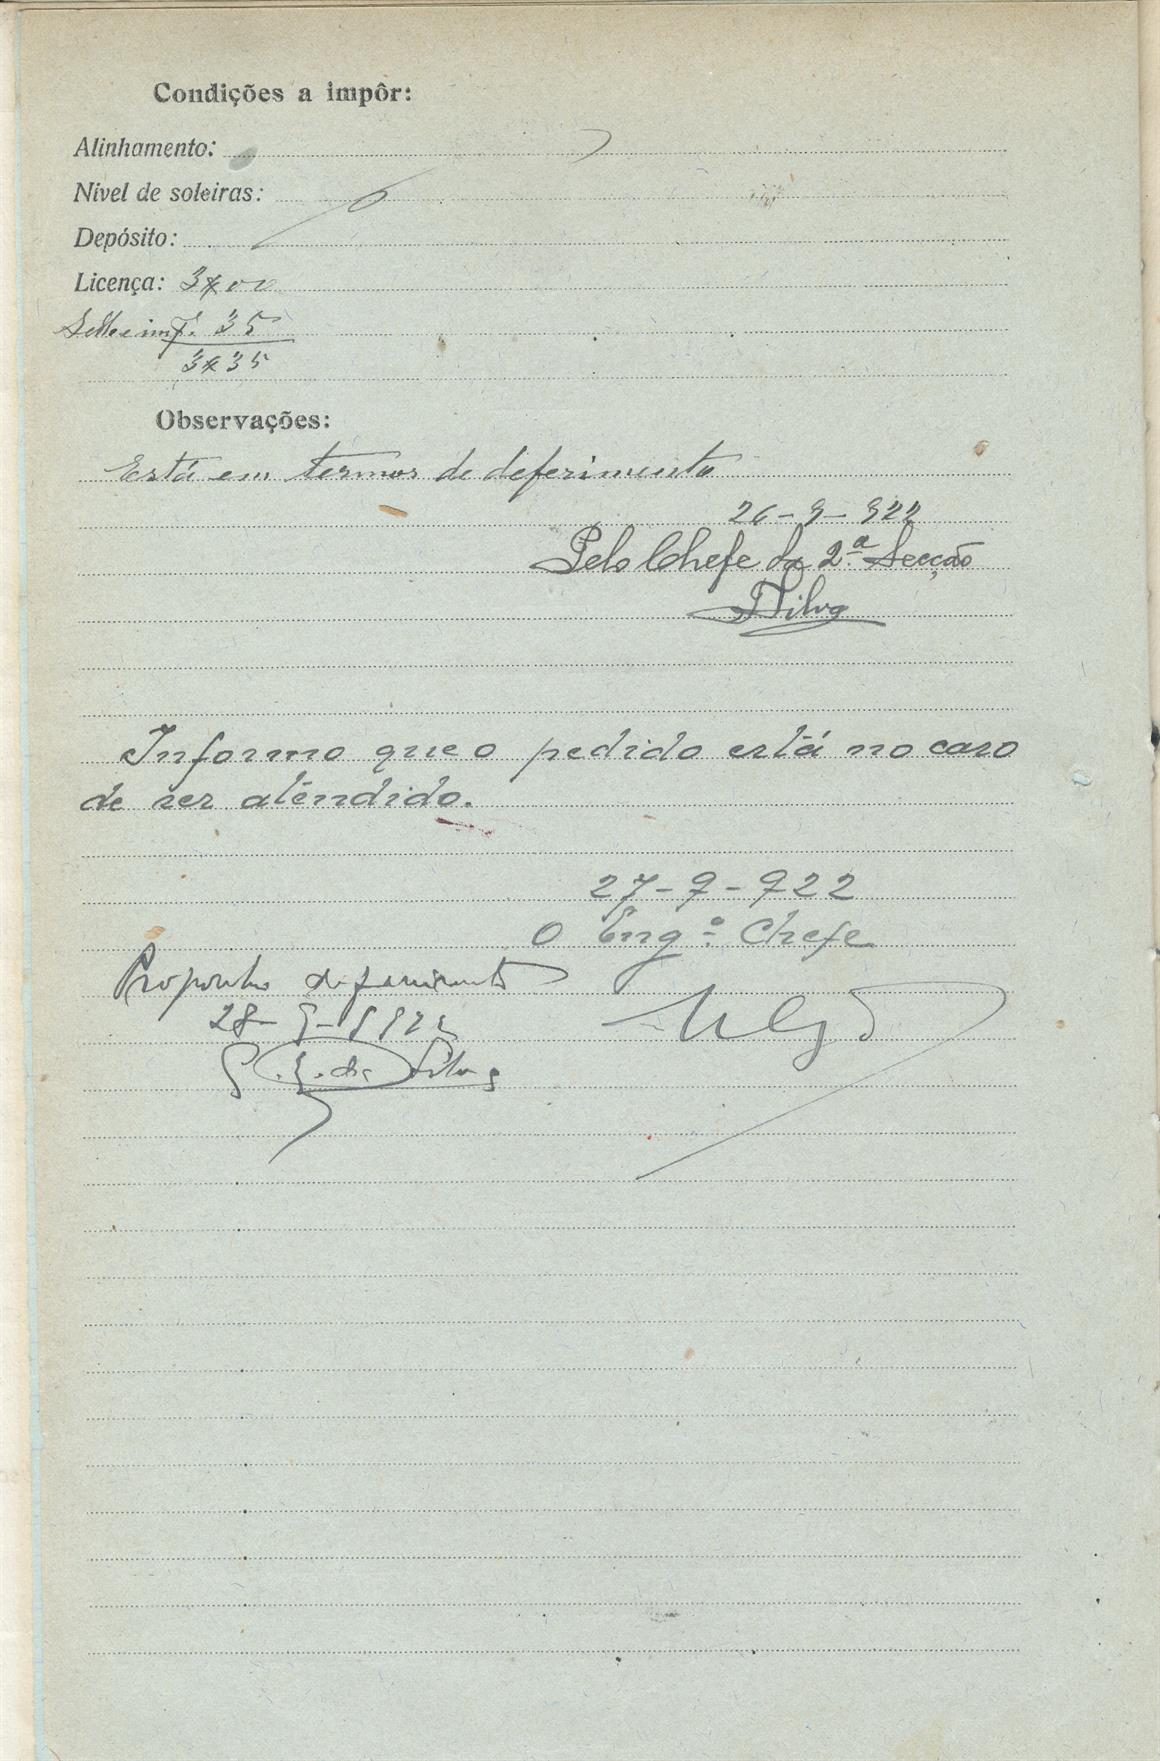 Condições a impôr:
Alinhamento:
Nível de soleiras:
Depósito:
Licença: 3$00
Sello e imp. 35
3$35
Observações:
Está em termos de deferimento
26-9-922
Pelo Chefe da 2.ª Secção
Silva
Informo que o pedido está no caso
de ser atendido.
27-9-922
O Eng.º Chefe
Proponho deferimento
28-9-1922
da Silva